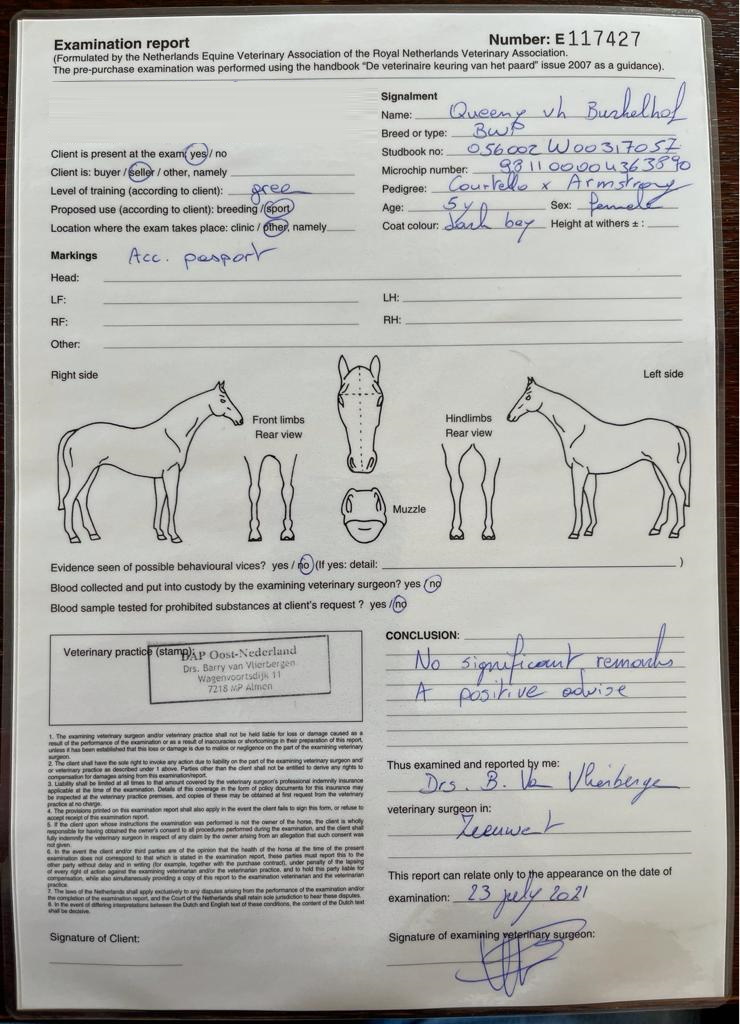 Examination report
Number: E 117427
(Formulated by the Netherlands Equine Veterinary Association of the Royal Netherlands Veterinary Association.
The pre-purchase examination was performed using the handbook "De veterinaire keuring van het paard" issue 2007 as a guidance).
Signalment
Name: Queeny vh Bushelhof
Breed or type: BWP
Studbook no: 056002 W00317057
Microchip number: 981100004363890
Pedigree: Courtello x Armstrong
Age: 5y Sex: female
Coat colour: dark bay Height at withers ± :
Client is present at the exam: yes / no
Client is: buyer / seller / other, namely
Level of training (according to client): green
Proposed use (according to client): breeding / sport
Location where the exam takes place: clinic / other, namely
Markings Acc. pasport
Head:
LF: LH:
RF: RH:
Other:
Right side
Left side
Front limbs
Rear view
Hindlimbs
Rear view
Muzzle
Evidence seen of possible behavioural vices? yes / no (If yes: detail: )
Blood collected and put into custody by the examining veterinary surgeon? yes / no
Blood sample tested for prohibited substances at client's request ? yes / no
Veterinary practice (stamp):
DAP Oost-Nederland
Drs. Barry van Vlierbergen
Wagenvoortsdijk 11
7218 MP Almen
CONCLUSION:
No significant remarks
A positive advise
1. The examining veterinary surgeon and/or veterinary practice shall not be held liable for loss or damage caused as a
result of the performance of the examination or as a result of inaccuracies or shortcomings in their preparation of this report,
unless it has been established that this loss or damage is due to malice or negligence on the part of the examining veterinary
surgeon.
2. The client shall have the sole right to invoke any action due to liability on the part of the examining veterinary surgeon and/
or veterinary practice as described under 1 above. Parties other than the client shall not be entitled to derive any rights to
compensation for damages arising from this examination/report.
3. Liability shall be limited at all times to that amount covered by the veterinary surgeon's professional indemnity insurance
applicable at the time of the examination. Details of this coverage in the form of policy documents for this insurance may
be inspected at the veterinary practice premises, and copies of these may be obtained at first request from the veterinary
practice at no charge.
4. The provisions printed on this examination report shall also apply in the event the client fails to sign this form, or refuse to
accept receipt of this examination report.
5. If the client upon whose instructions the examination was performed is not the owner of the horse, the client is wholly
responsible for having obtained the owner's consent to all procedures performed during the examination, and the client shall
fully indemnify the veterinary surgeon in respect of any claim by the owner arising from an allegation that such consent was
not given.
6. In the event the client and/or third parties are of the opinion that the health of the horse at the time of the present
examination does not correspond to that which is stated in the examination report, these parties must report this to the
other party without delay and in writing (for example, together with the purchase contract), under penalty of the lapsing
of every right of action against the examining veterinarian and/or the veterinary practice, and to hold this party liable for
compensation, while also simultaneously providing a copy of this report to the examination veterinarian and the veterinary
practice.
7. The laws of the Netherlands shall apply exclusively to any disputes arising from the performance of the examination and/or
the completion of the examination report, and the Court of the Netherlands shall retain sole jurisdiction to hear these disputes.
8. In the event of differing interpretations between the Dutch and English text of these conditions, the content of the Dutch text
shall be decisive.
Thus examined and reported by me:
Drs. B. Van Vlierberge
veterinary surgeon in:
This report can relate only to the appearance on the date of
examination: 23 july 2021
Signature of Client:
Signature of examining veterinary surgeon: